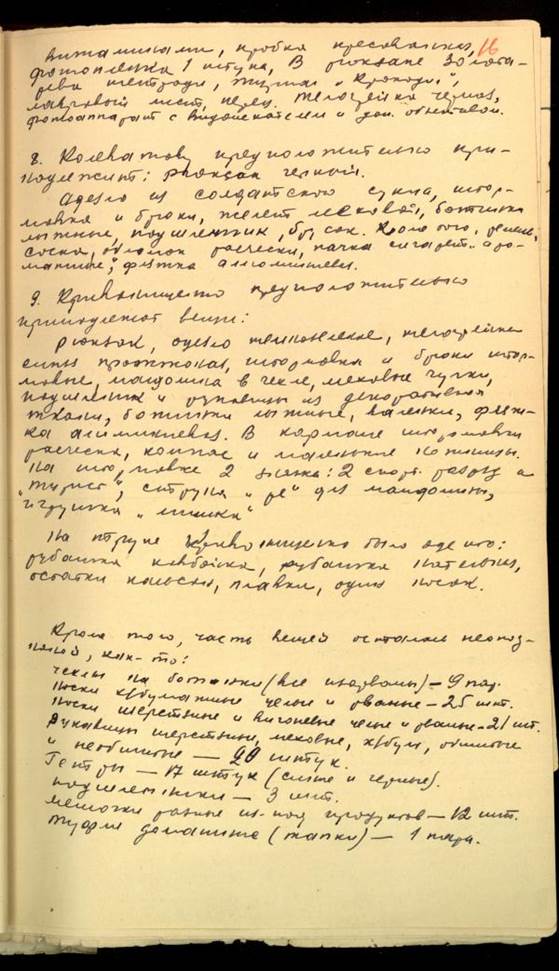 витаминами, пробка пресованная, 16
фотопленка 1 штука, В рюкзаке Золота-
рева тетради, журнал „Крокодил",
лавровый лист, перец. Телогрейка черная,
фотоаппарат с видоискателем и доп. объективом.
8. Колеватову предположительно при-
надлежит: рюкзак черный.
Одеяло из солдатского сукна, штор-
мовка и брюки, жилет меховой, ботинки
лыжные, подшлемник, брусок. Кроме того, ремень,
соска, обломок расчески, пачка сигарет „аро-
матные", фляжка алюминиевая.
9. Кривонищенко предположительно
принадлежат вещи:
Рюкзак, одеяло, телогрейка
штормовка и брюки штор-
мовые, мандолина в чехле, меховые чулки,
подшлемник и рукавицы из декоративной
ткани, ботинки лыжные, валенки, фляж-
ка алюминиевая. В кармане штормовки
расческа, компас и маленькие ножницы.
На штормовке 2 значка: 2 спорт. разряд и
„турист", струна „ре" для мандолины,
игрушка „мишка"
На трупе Кривонищенко было одето:
рубашка ковбойка, рубашка нательная,
остатки кальсон, плавки, один носок.
Кроме того, часть вещей осталась неопоз-
нанной, как-то:
чехлы на ботинки (все изорваны) — 9 пар.
носки х/бумажные целые и рваные — 25 шт.
носки шерстяные и вигоневые целые и рваные — 21 шт.
Рукавицы шерстяные, меховые, х/бум, обшитые
и необшитые — 20 штук.
Гетры — 17 штук (синие и черные).
подшлемники — 3 шт.
мешочки разные из-под продуктов — 12 шт.
туфли домашние (тапки) — 1 пара.